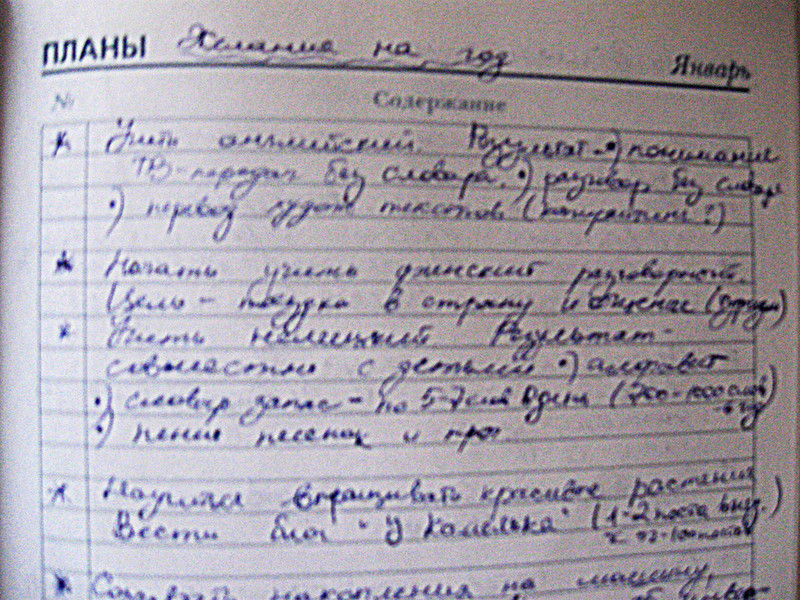 ПЛАНЫ Желания на год
Январь
№ Содержание
* Учить английский. Результат •) понимание
ТВ-передач без словаря, •) разговор без словаря
•) перевод худож текстов (копирайтинг?)
* Начать учить финский разговорный.
Цель - поездка в страну и общение (туризм)
* Учить немецкий. Результат -
совместно с детьми •) алфавит
•) словар запас - по 5-7 слов в день (700-1000 слов
•) пение песенок и проч.
* Научиться выращивать красивые растения
Вести блог "У камелька" (1-2 поста в нед.)
* Создавать накопления на машину,